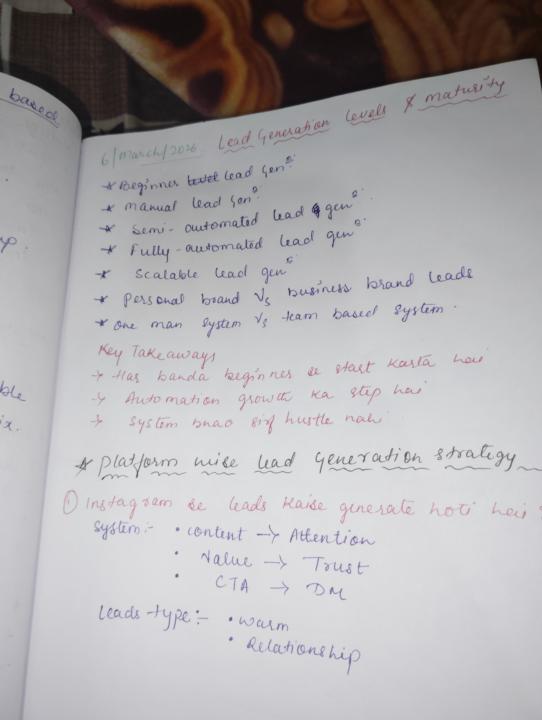 based
6/March/2026 Lead Generation levels & maturity
* Beginner level lead genº
* manual lead genº
* Semi-automated lead genº
* Fully-automated lead genº
* Scalable lead genº
* Personal brand Vs business brand leads
* One man system Vs team based system.
Key Takeaways
→ Har banda beginner se start karta hai
→ Automation growth ka step hai
→ System bnao sirf hustle nahi
* Platform wise lead Generation strategy
① Instagram se leads kaise generate hoti hai ?
System:- • content → Attention
• Value → Trust
• CTA → DM
leads-type:- • warm
• Relationship